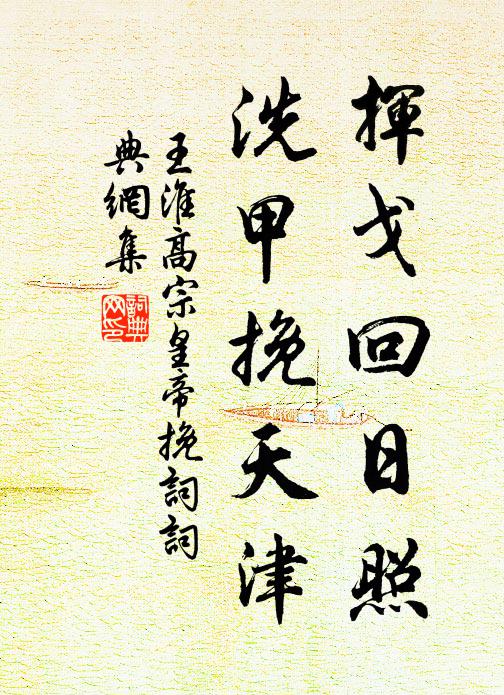 揮戈回日照
洗甲挽天津
王淮高宗皇帝挽詞詞
典網集
詞典
网印